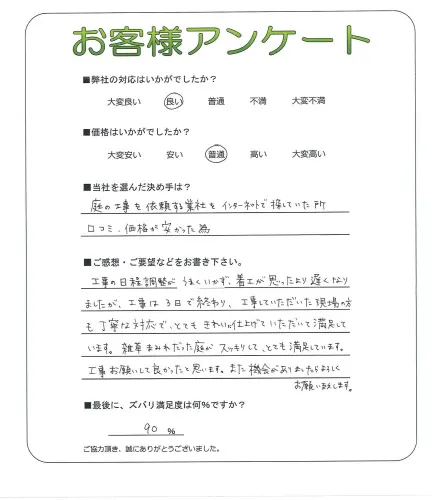 お客様アンケート
■弊社の対応はいかがでしたか?
大変良い 良い 普通 不満 大変不満
■価格はいかがでしたか?
大変安い 安い 普通 高い 大変高い
■当社を選んだ決め手は?
庭の工事を依頼する業社をインターネットで探していた所
口コミ、価格が安かった為
■ご感想・ご要望などをお書き下さい。
工事の日程調整が うまくいかず、着工が思ったより遅くなり
ましたが、工事は3日で終わり、工事していただいた現場の方
も丁寧な対応で、とてもきれいに仕上げていただいて満足して
います。雑草まみれだった庭がスッキリして、とても満足しています。
工事お願いして良かったと思います。また機会がありましたらよろしく
お願い致します。
■最後に、ズバリ満足度は何%ですか?
90 %
ご協力頂き、誠にありがとうございました。